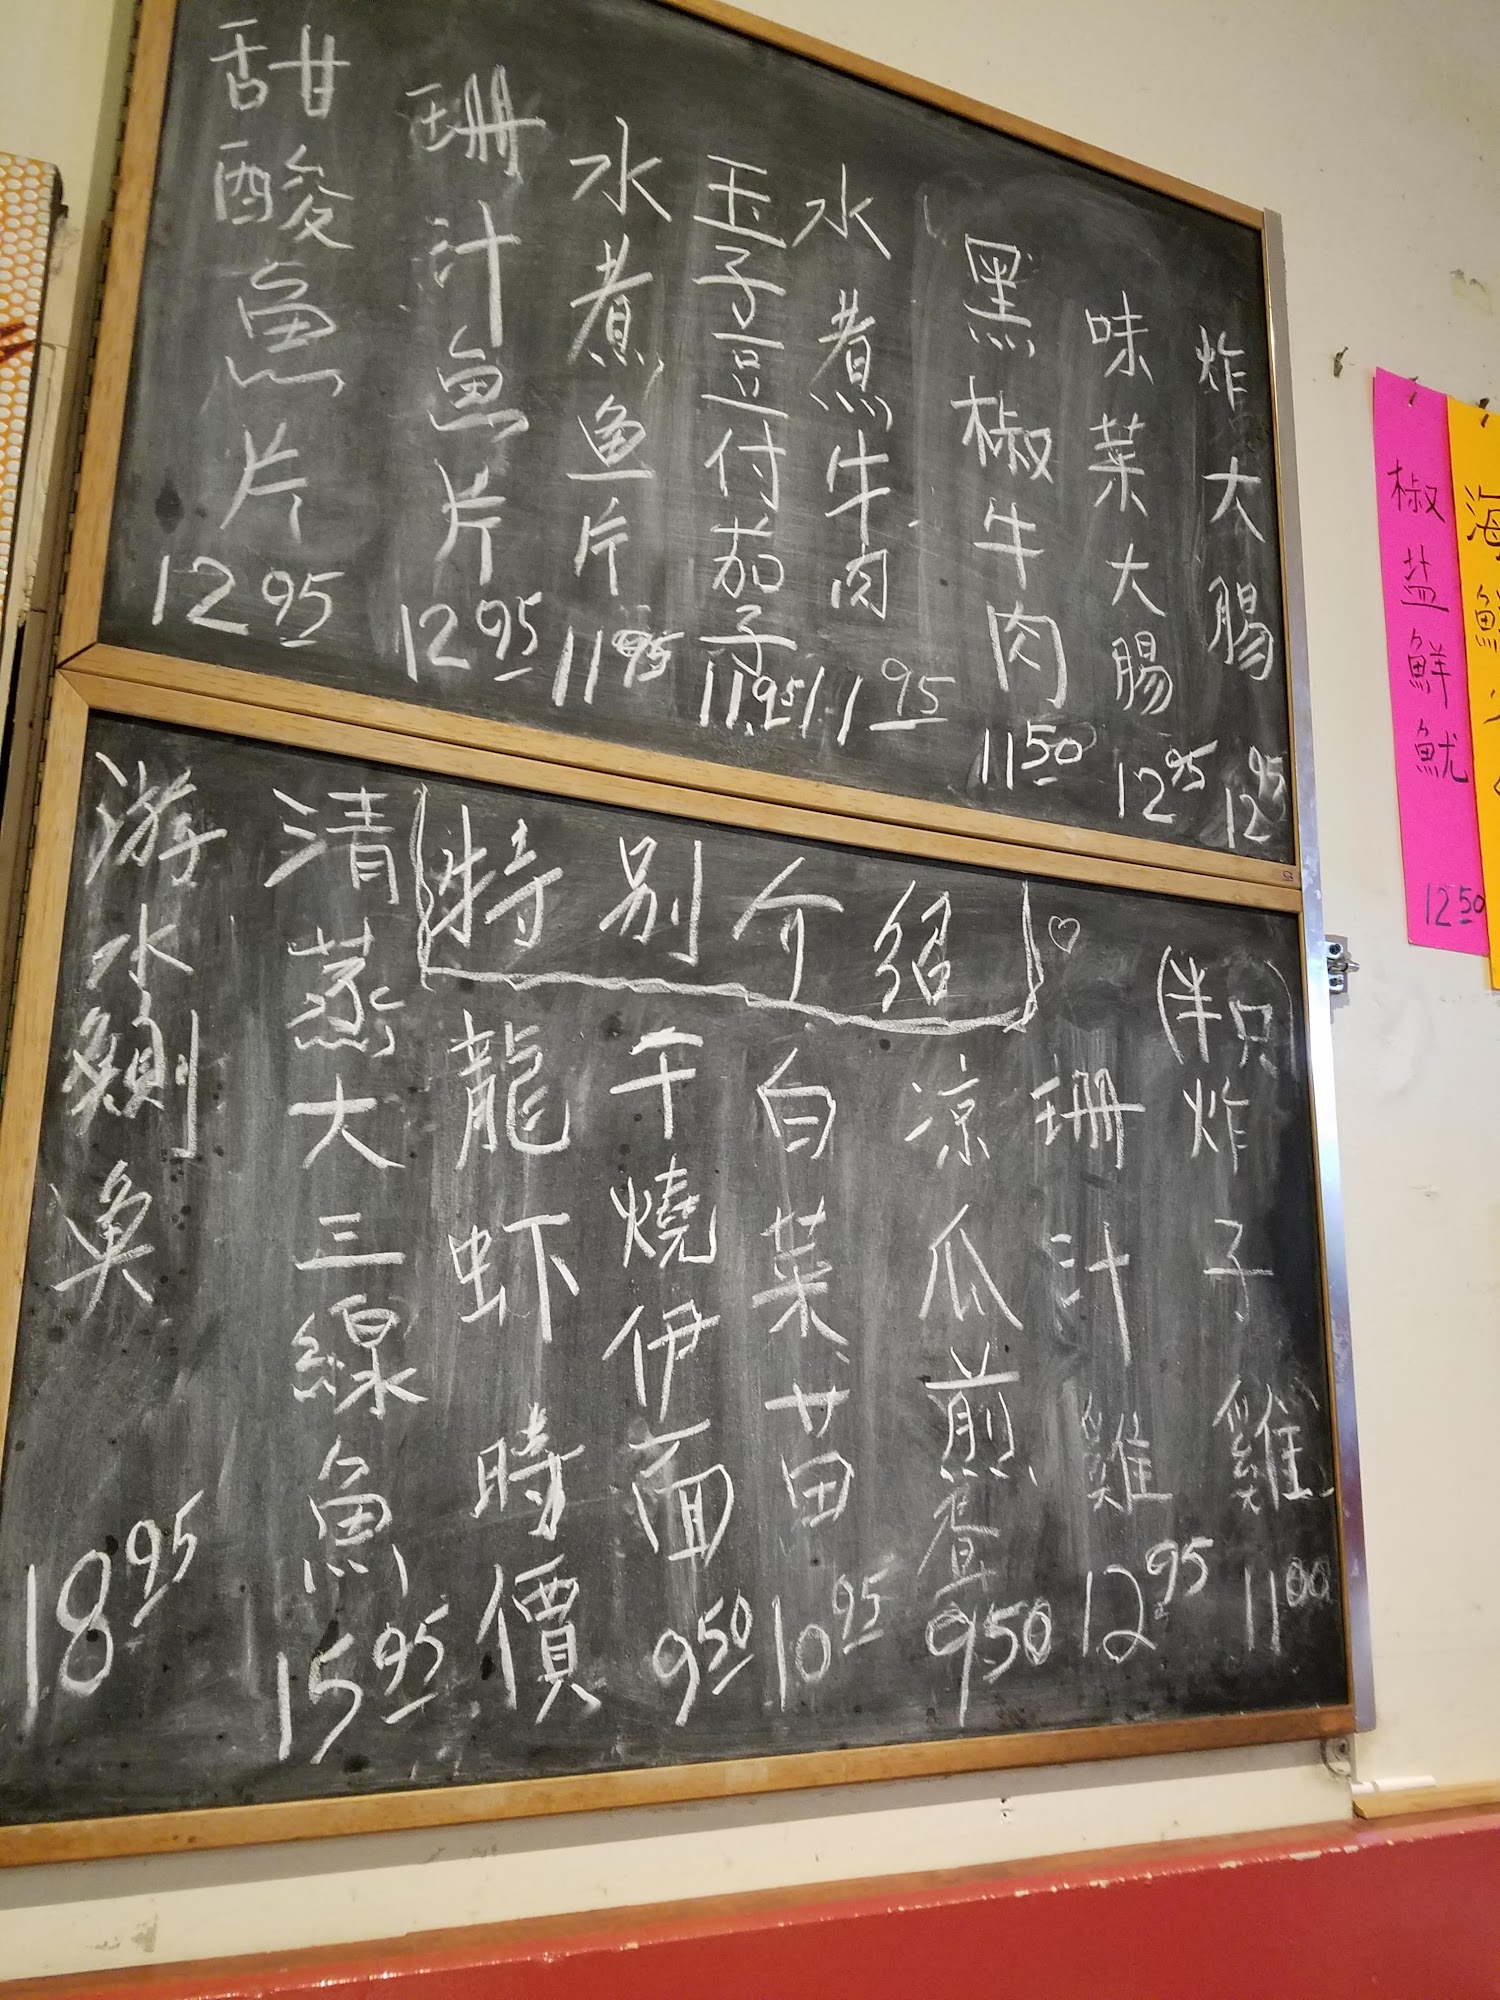 甜酸魚片 12 95
珊汁魚片 12 95
水煮魚片 11 95
玉子豆付茄子 11.95
水煮牛肉 11 95
黑椒牛肉 11 50
味菜大腸 12 95
炸大腸 12 95
特別介紹
游水鰂魚 18 95
清蒸大三線魚 15 95
龍虾 時價
干燒伊面 9 50
白菜苗 10 95
凉瓜煎蛋 9 50
珊汁雞 12 95
(半只) 炸子雞 11 00
椒盐鮮魷 12 50
海鮮